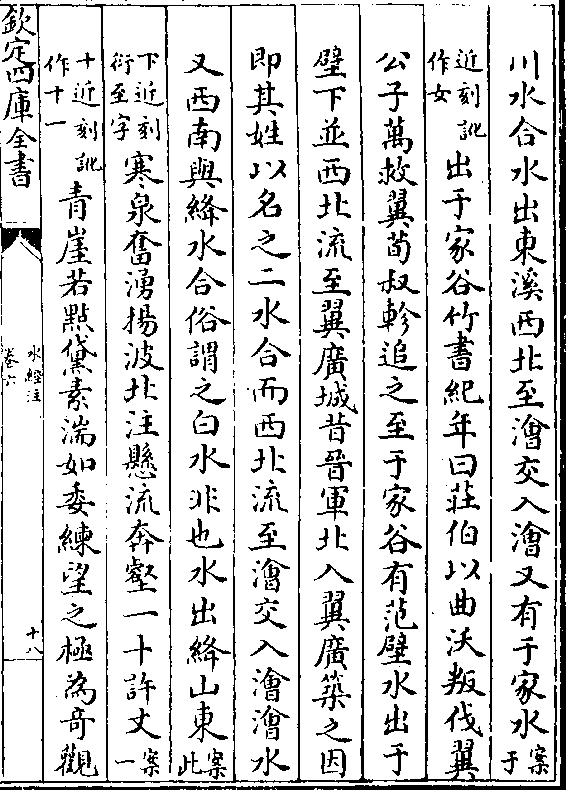 川水合水出東溪西北至澮交入澮又有于家水案于
近刻訛作女出于家谷竹書紀年曰莊伯以曲沃叛伐翼
公子萬救翼荀叔軫追之至于家谷有范壁水出于
壁下並西北流至翼廣城昔晉軍北入翼廣築之因
即其姓以名之二水合而西北流至澮交入澮澮水
又西南與絳水合俗謂之白水非也水出絳山東案此
下近刻衍至字寒泉奮湧揚波北注懸流奔壑一十許丈案一
十近刻訛作十一青崖若點黛素湍如委練望之極為奇觀
欽定四庫全書
水經注
卷六
十八